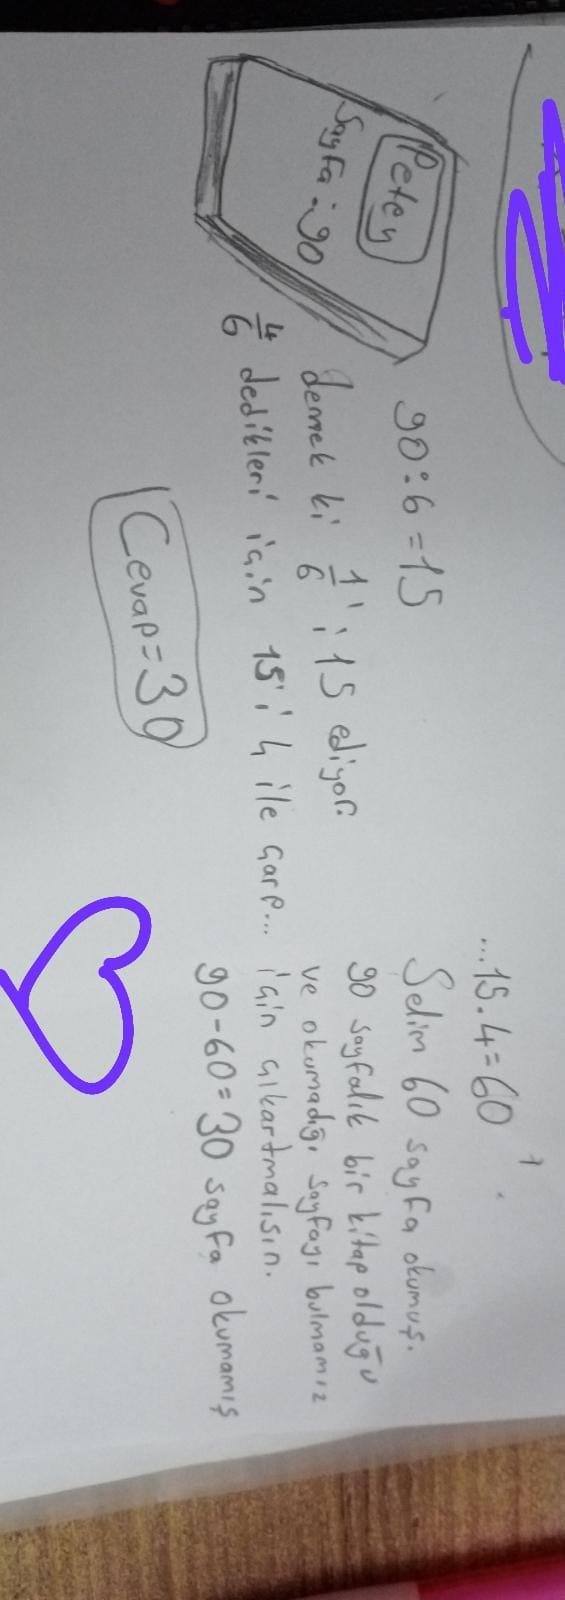 Petey
Sayfa: 90
90:6=15
demek ki 1/6'i 15 ediyor.
4/6 dedikleri için 15'i 4 ile çarp...
Cevap=30
...15.4=60
Selim 60 sayfa okumuş.
90 sayfalık bir kitap olduğu
ve okumadığı sayfayı bulmamız
için çıkartmalısın.
90-60=30 sayfa okumamış